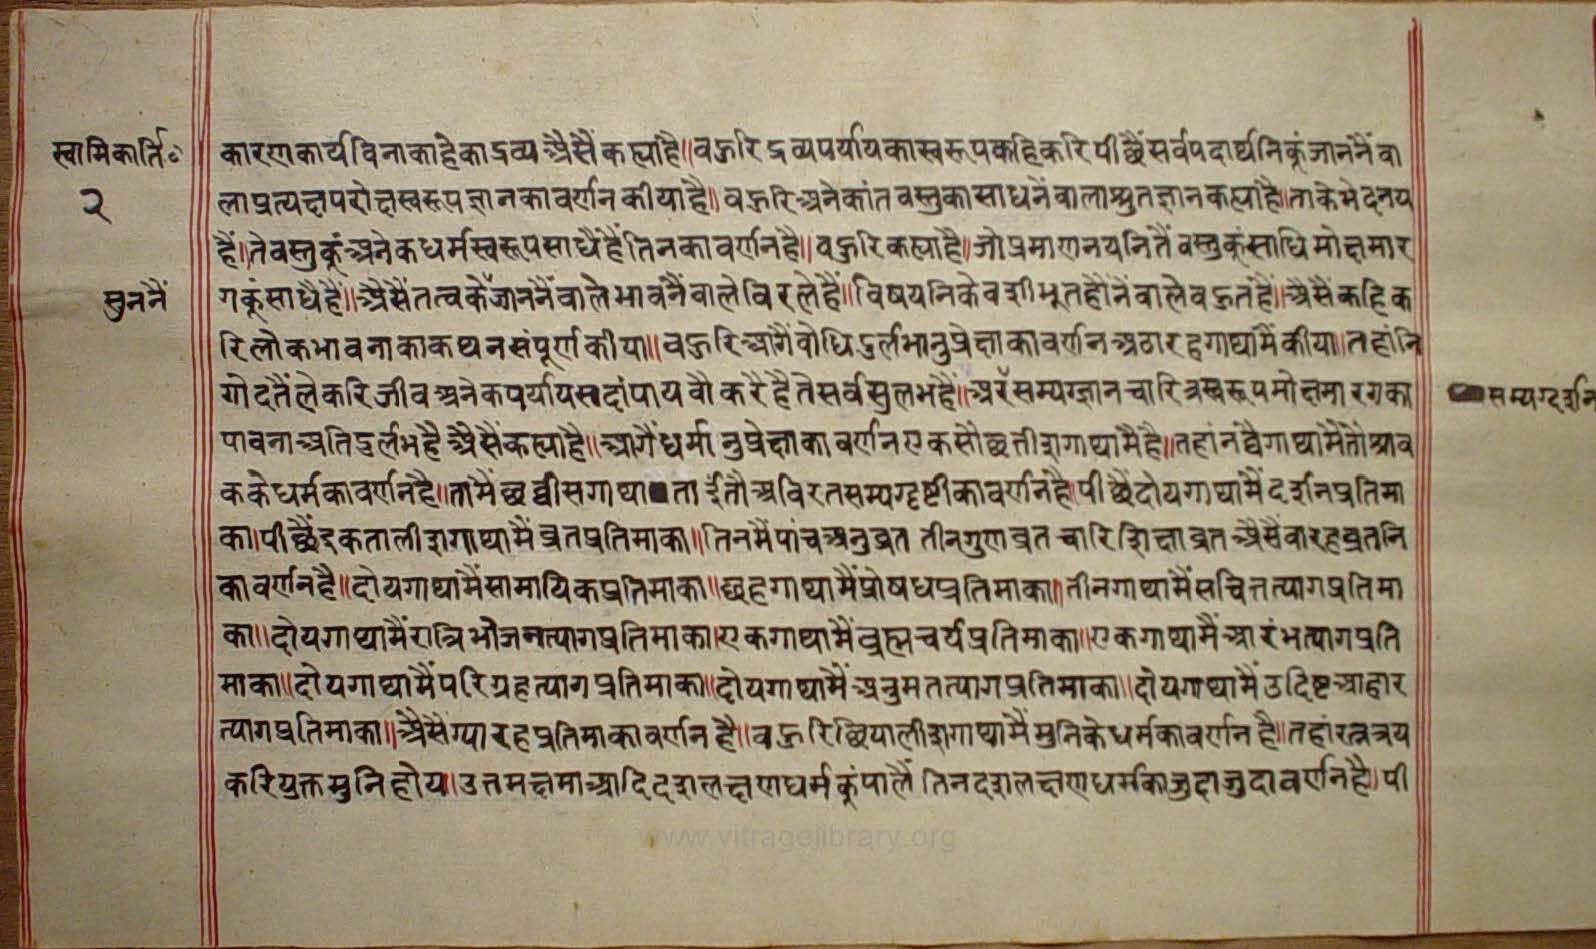 स्वामिकार्ति॰
२
कारणकार्यविनाकाहेकाद्रव्यअैसैंकह्याहै॥वहुरिद्रव्यपर्यायकास्वरूपकहिकरिपीछैंसर्वपदार्थनिकूंजाननैंवा
लाप्रत्यक्षपरोक्षस्वरूपज्ञानकावर्णनकीयाहै॥वहुरिअनेकांतवस्तुकासाधनेंवालाश्रुतज्ञानकह्याहै॥ताकेभेदनय
हैं॥तेवस्तुकूंअनेकधर्मस्वरूपसाधैहैंतिनकावर्णनहै॥वहुरिकह्याहै॥जोप्रमाणनयनितैंवस्तुकूंसाधिमोक्षमार
सुननैं
गकूंसाधैहैं॥अैसैंतत्वकेजाननैंवालेभावनैंवालेविरलेहैं॥विषयनिकेवशीभूतहौंनेंवालेवहुतहैं॥अैसैंकहिक
रिलोकभावनाकाकथनसंपूर्णकीया॥वहुरिआगैंवोधिदुर्लभानुप्रेक्षाकावर्णनअठारहगाथामैंकीया॥तहांनि
गोदतैंलेकरिजीवअनेकपर्यायसदांपायवौकरैहैतेसर्वसुलभहैं॥अरसम्यग्ज्ञानचारित्रस्वरूपमोक्षमारगका
सम्यग्दर्शन
पावनाअतिदुर्लभहैअैसैंकह्याहै॥आगैंधर्मानुप्रेक्षाकावर्णनएकसौछतीशगाथामैंहै॥तहांनंवैगाथामैंतौश्राव
ककेधर्मकावर्णनहै॥तामैंछव्वीसगाथातांईतौअविरतसम्यगृष्टीकावर्णनहै॥पीछैंदोयगाथामैंदर्शनप्रतिमा
का॥पीछैंइकतालीशगाथामैंव्रतप्रतिमाका॥तिनमैंपांचअनुव्रततीनगुणव्रतचारिशिक्षाव्रतअैसैंवारहव्रतनि
कावर्णनहै॥दोयगाथामैंसामायिकप्रतिमाका॥छहगाथामैंप्रोषधप्रतिमाका॥तीनगाथामैंसचित्तत्यागप्रतिमा
का॥दोयगाथामैंरात्रिभोजनत्यागप्रतिमाका॥एकगाथामैंव्रह्मचर्यप्रतिमाका॥एकगाथामैंआरंभत्यागप्रति
माका॥दोयगाथामैंपरिग्रहत्यागप्रतिमाका॥दोयगाथामैंअनुमतत्यागप्रतिमाका॥दोयगाथामैंउदिष्टआहार
त्यागप्रतिमाका॥अैसैंग्यारहप्रतिमाकावर्णनहै॥वहुरिछियालीशगाथामैंमुनिकेधर्मकावर्णनहै॥तहांरत्नत्रय
करियुक्तमुनिहोय॥उत्तमक्षमाआदिदशलक्षणधर्मकूंपालैं तिनदशलक्षणधर्मकाजुदाजुदावर्णनहै॥पी
www.vitragelibrary.org